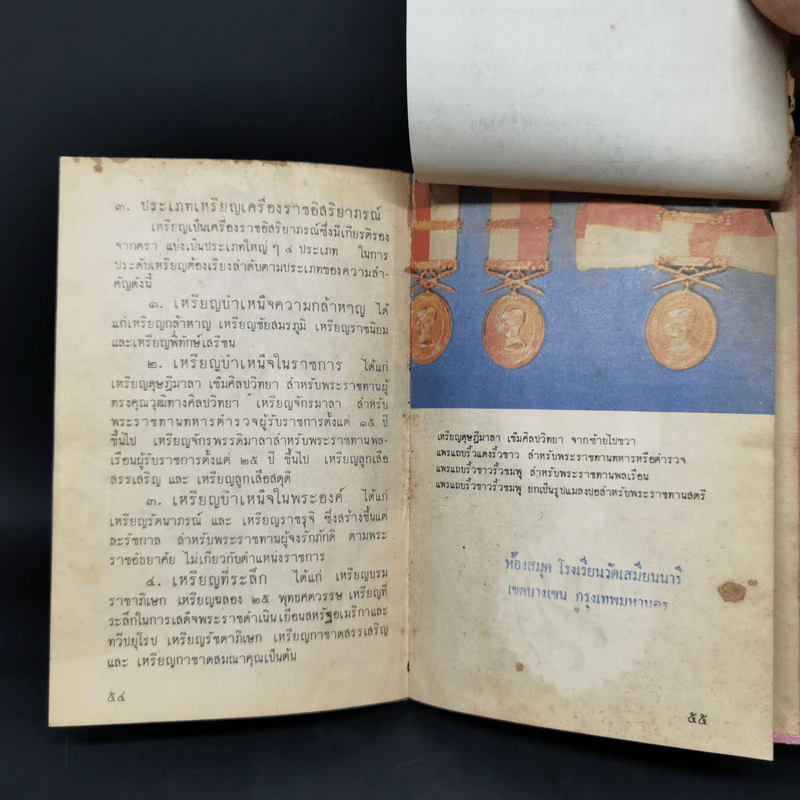 ๓. ประเภทเหรียญเครื่องราชอิสริยาภรณ์
เหรียญเป็นเครื่องราชอิสริยาภรณ์ซึ่งมีเกียรติรอง
จากตรา แบ่งเป็นประเภทใหญ่ ๆ ๔ ประเภท ในการ
ประดับเหรียญต้องเรียงลำดับตามประเภทของความสำ-
คัญดังนี้
๑. เหรียญบำเหน็จความกล้าหาญ ได้
แก่เหรียญกล้าหาญ เหรียญชัยสมรภูมิ เหรียญราชนิยม
และเหรียญพิทักษ์เสรีชน
๒. เหรียญบำเหน็จในราชการ ได้แก่
เหรียญดุษฎีมาลา เข็มศิลปวิทยา สำหรับพระราชทานผู้
ทรงคุณวุฒิทางศิลปวิทยา เหรียญจักรมาลา สำหรับ
พระราชทานทหารตำรวจผู้รับราชการตั้งแต่ ๑๕ ปี
ขึ้นไป เหรียญจักรพรรดิมาลาสำหรับพระราชทานพล-
เรือนผู้รับราชการตั้งแต่ ๒๕ ปี ขึ้นไป เหรียญลูกเสือ
สรรเสริญ และ เหรียญลูกเสือสดุดี
๓. เหรียญบำเหน็จในพระองค์ ได้แก่
เหรียญรัตนาภรณ์ และ เหรียญราชรุจิ ซึ่งสร้างขึ้นแต่
ละรัชกาล สำหรับพระราชทานผู้จงรักภักดี ตามพระ
ราชอัธยาศัย ไม่เกี่ยวกับตำแหน่งราชการ
๔. เหรียญที่ระลึก ได้แก่ เหรียญบรม
ราชาภิเษก เหรียญฉลอง ๒๕ พุทธศตวรรษ เหรียญที่
ระลึกในการเสด็จพระราชดำเนินเยือนสหรัฐอเมริกาและ
ทวีปยุโรป เหรียญรัชดาภิเษก เหรียญกาชาดสรรเสริญ
และ เหรียญกาชาดสมนาคุณเป็นต้น
๕๔
เหรียญดุษฎีมาลา เข็มศิลปวิทยา จากซ้ายไปขวา
แพรแถบริ้วแดงริ้วขาว สำหรับพระราชทานทหารหรือตำรวจ
แพรแถบริ้วขาวริ้วชมพู สำหรับพระราชทานพลเรือน
แพรแถบริ้วขาวริ้วชมพู ยกเป็นรูปแมลงปอสำหรับพระราชทานสตรี
ห้องสมุด โรงเรียนวัดเสมียนนารี
เขตบางเขน กรุงเทพมหานคร
๕๕